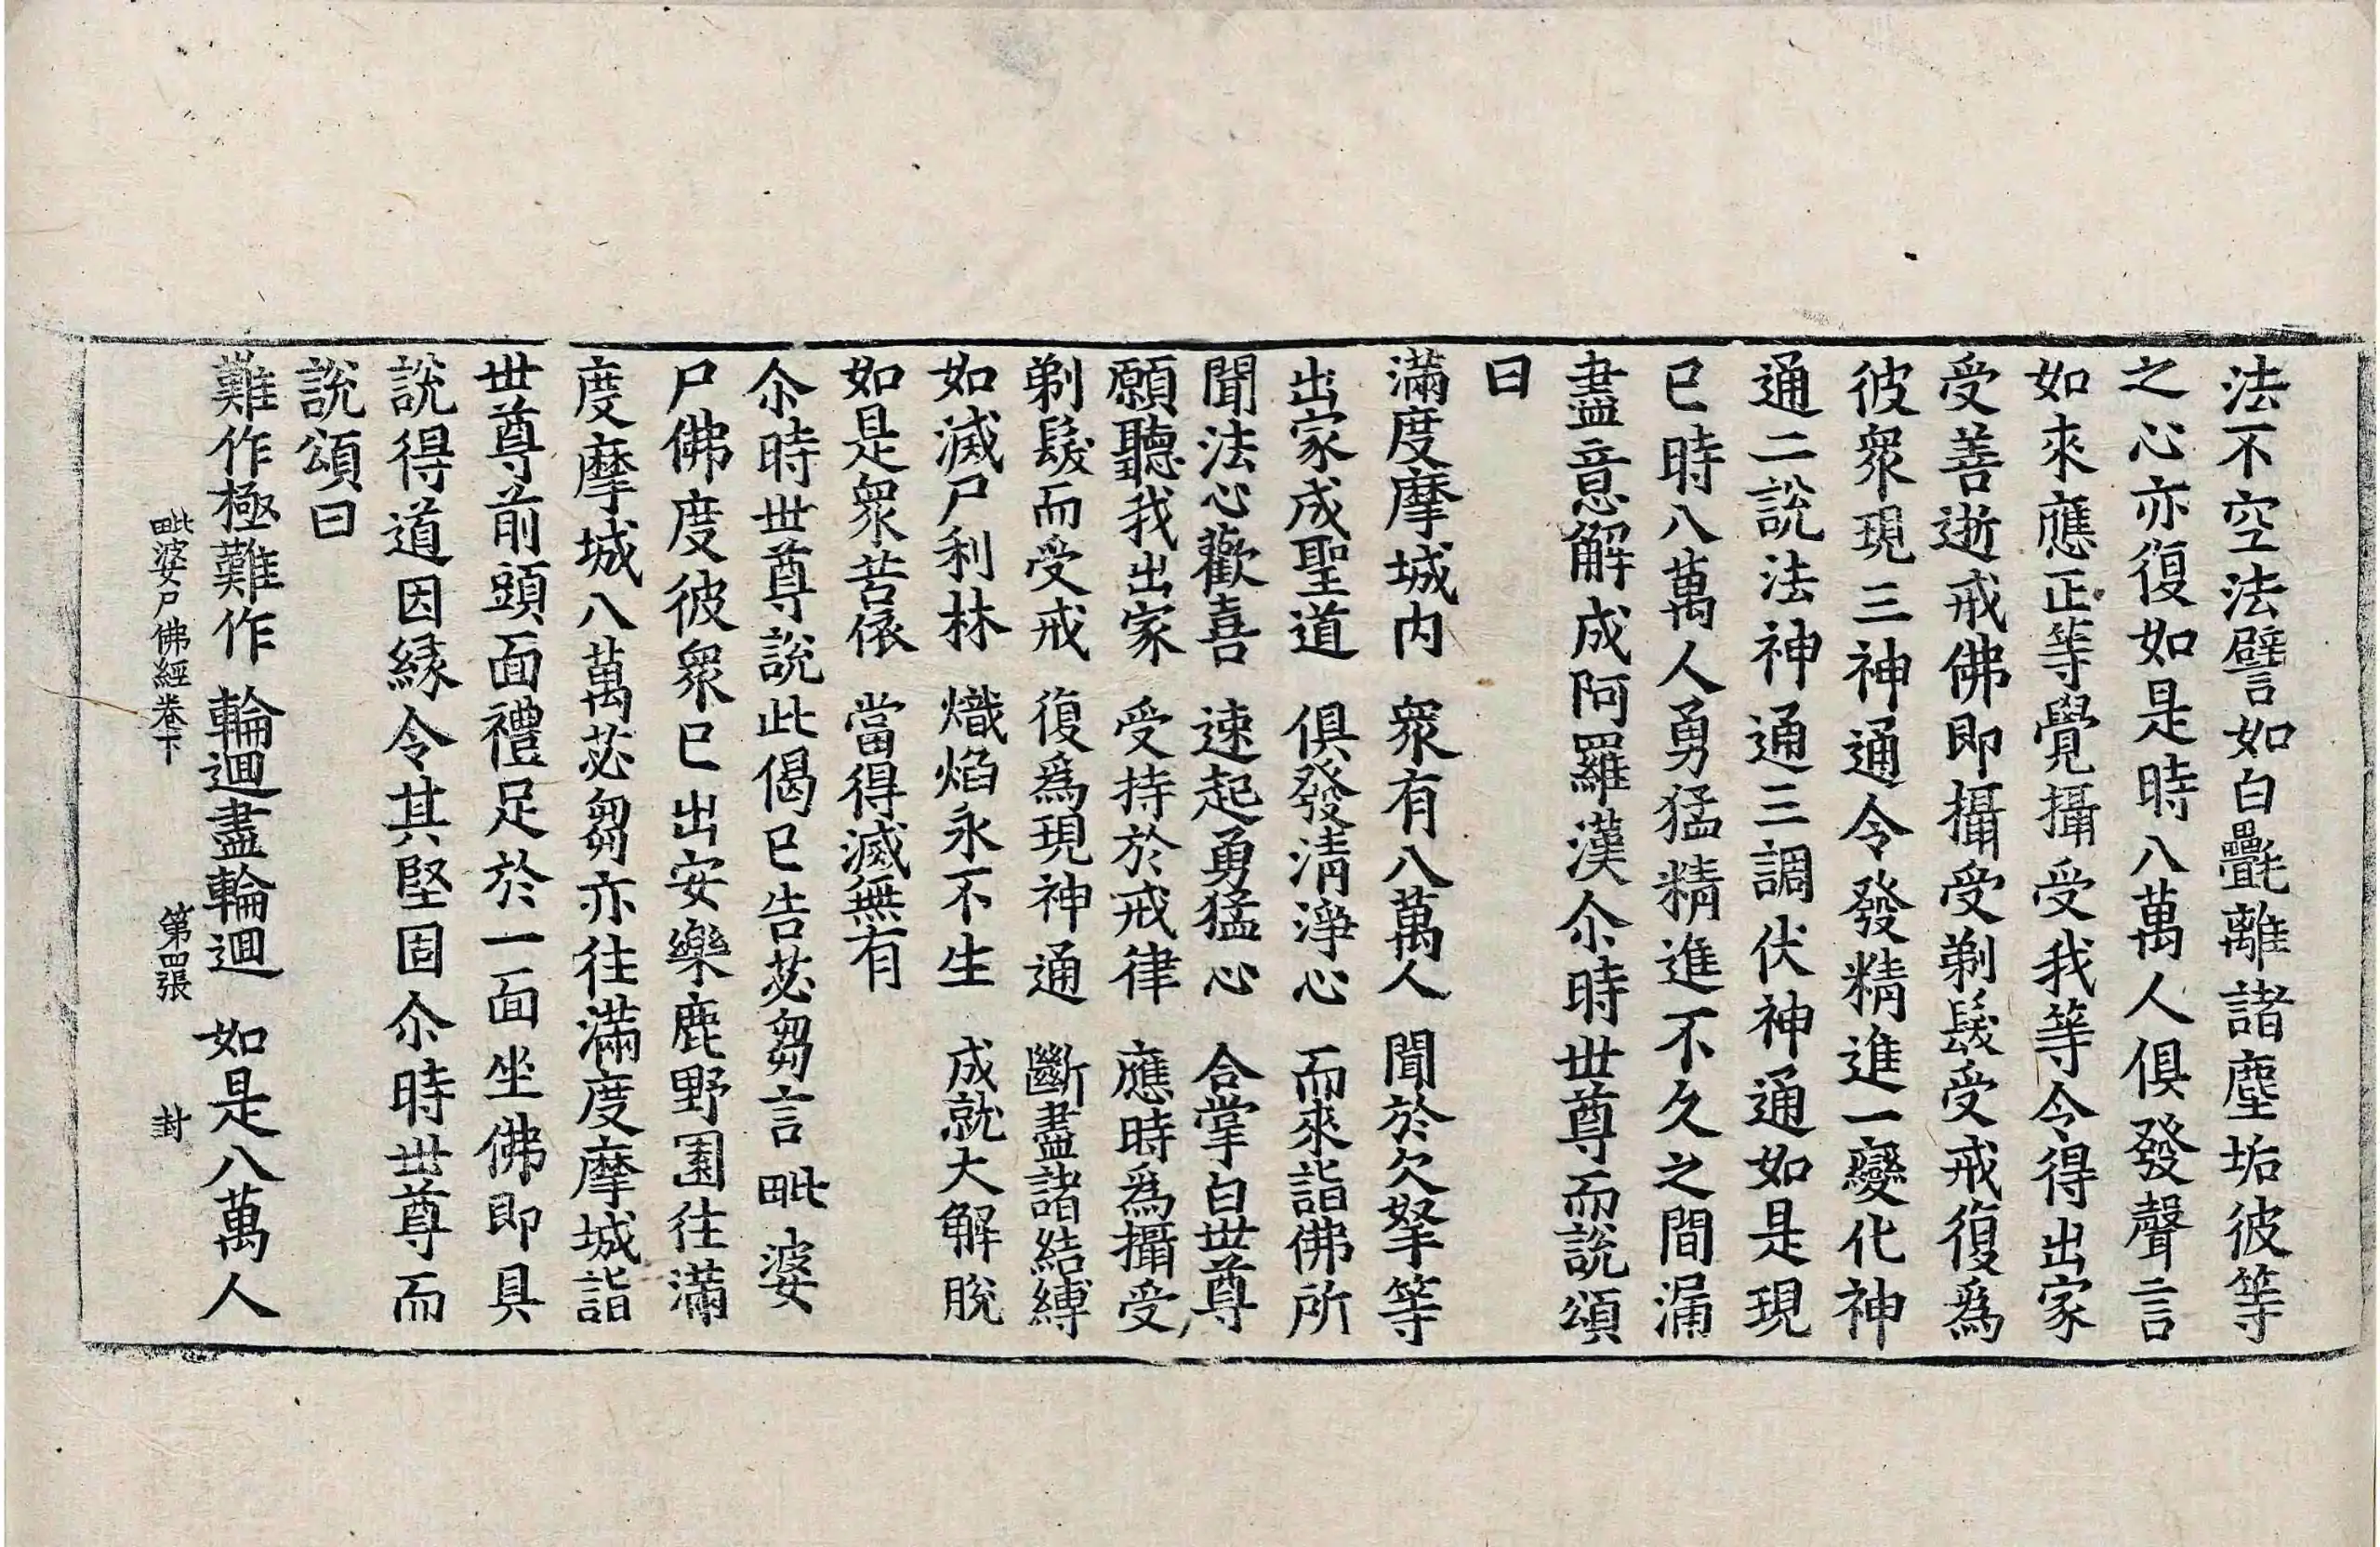 法不空法譬如白㲲離諸塵垢彼等
之心亦復如是時八萬人俱發聲言
如來應正等覺攝受我等令得出家
受善逝戒佛即攝受剃髮受戒復爲
彼衆現三神通令發精進一變化神
通二說法神通三調伏神通如是現
已時八萬人勇猛精進不久之間漏
盡意解成阿羅漢尒時世尊而說頌
曰
滿度摩城內　衆有八萬人　聞於欠拏等
出家成聖道　俱發淸淨心　而來詣佛所
聞法心歡喜　速起勇猛心　合掌白世尊
願聽我出家　受持於戒律　應時爲攝受
剃髮而受戒　復爲現神通　斷盡諸結縛
如滅尸利林　熾焰永不生　成就大解脫
如是衆苦依　當得滅無有
尒時世尊說此偈已告苾芻言毗婆
尸佛度彼衆已出安樂鹿野園往滿
度摩城八萬苾芻亦往滿度摩城詣
世尊前頭面禮足於一面坐佛即具
說得道因緣令其堅固尒時世尊而
說頌曰
難作極難作　輪迴盡輪迴　如是八萬人
毗婆尸佛經卷下　第四張　封